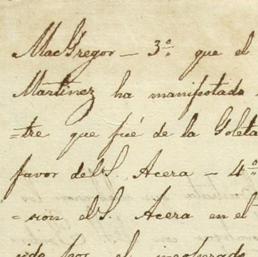 MacGregor – 3º que el
Martinez ha manifestado
=tre que fué de la Goleta
favor del S. Acera – 4º
=son del S. Acera en el
por el